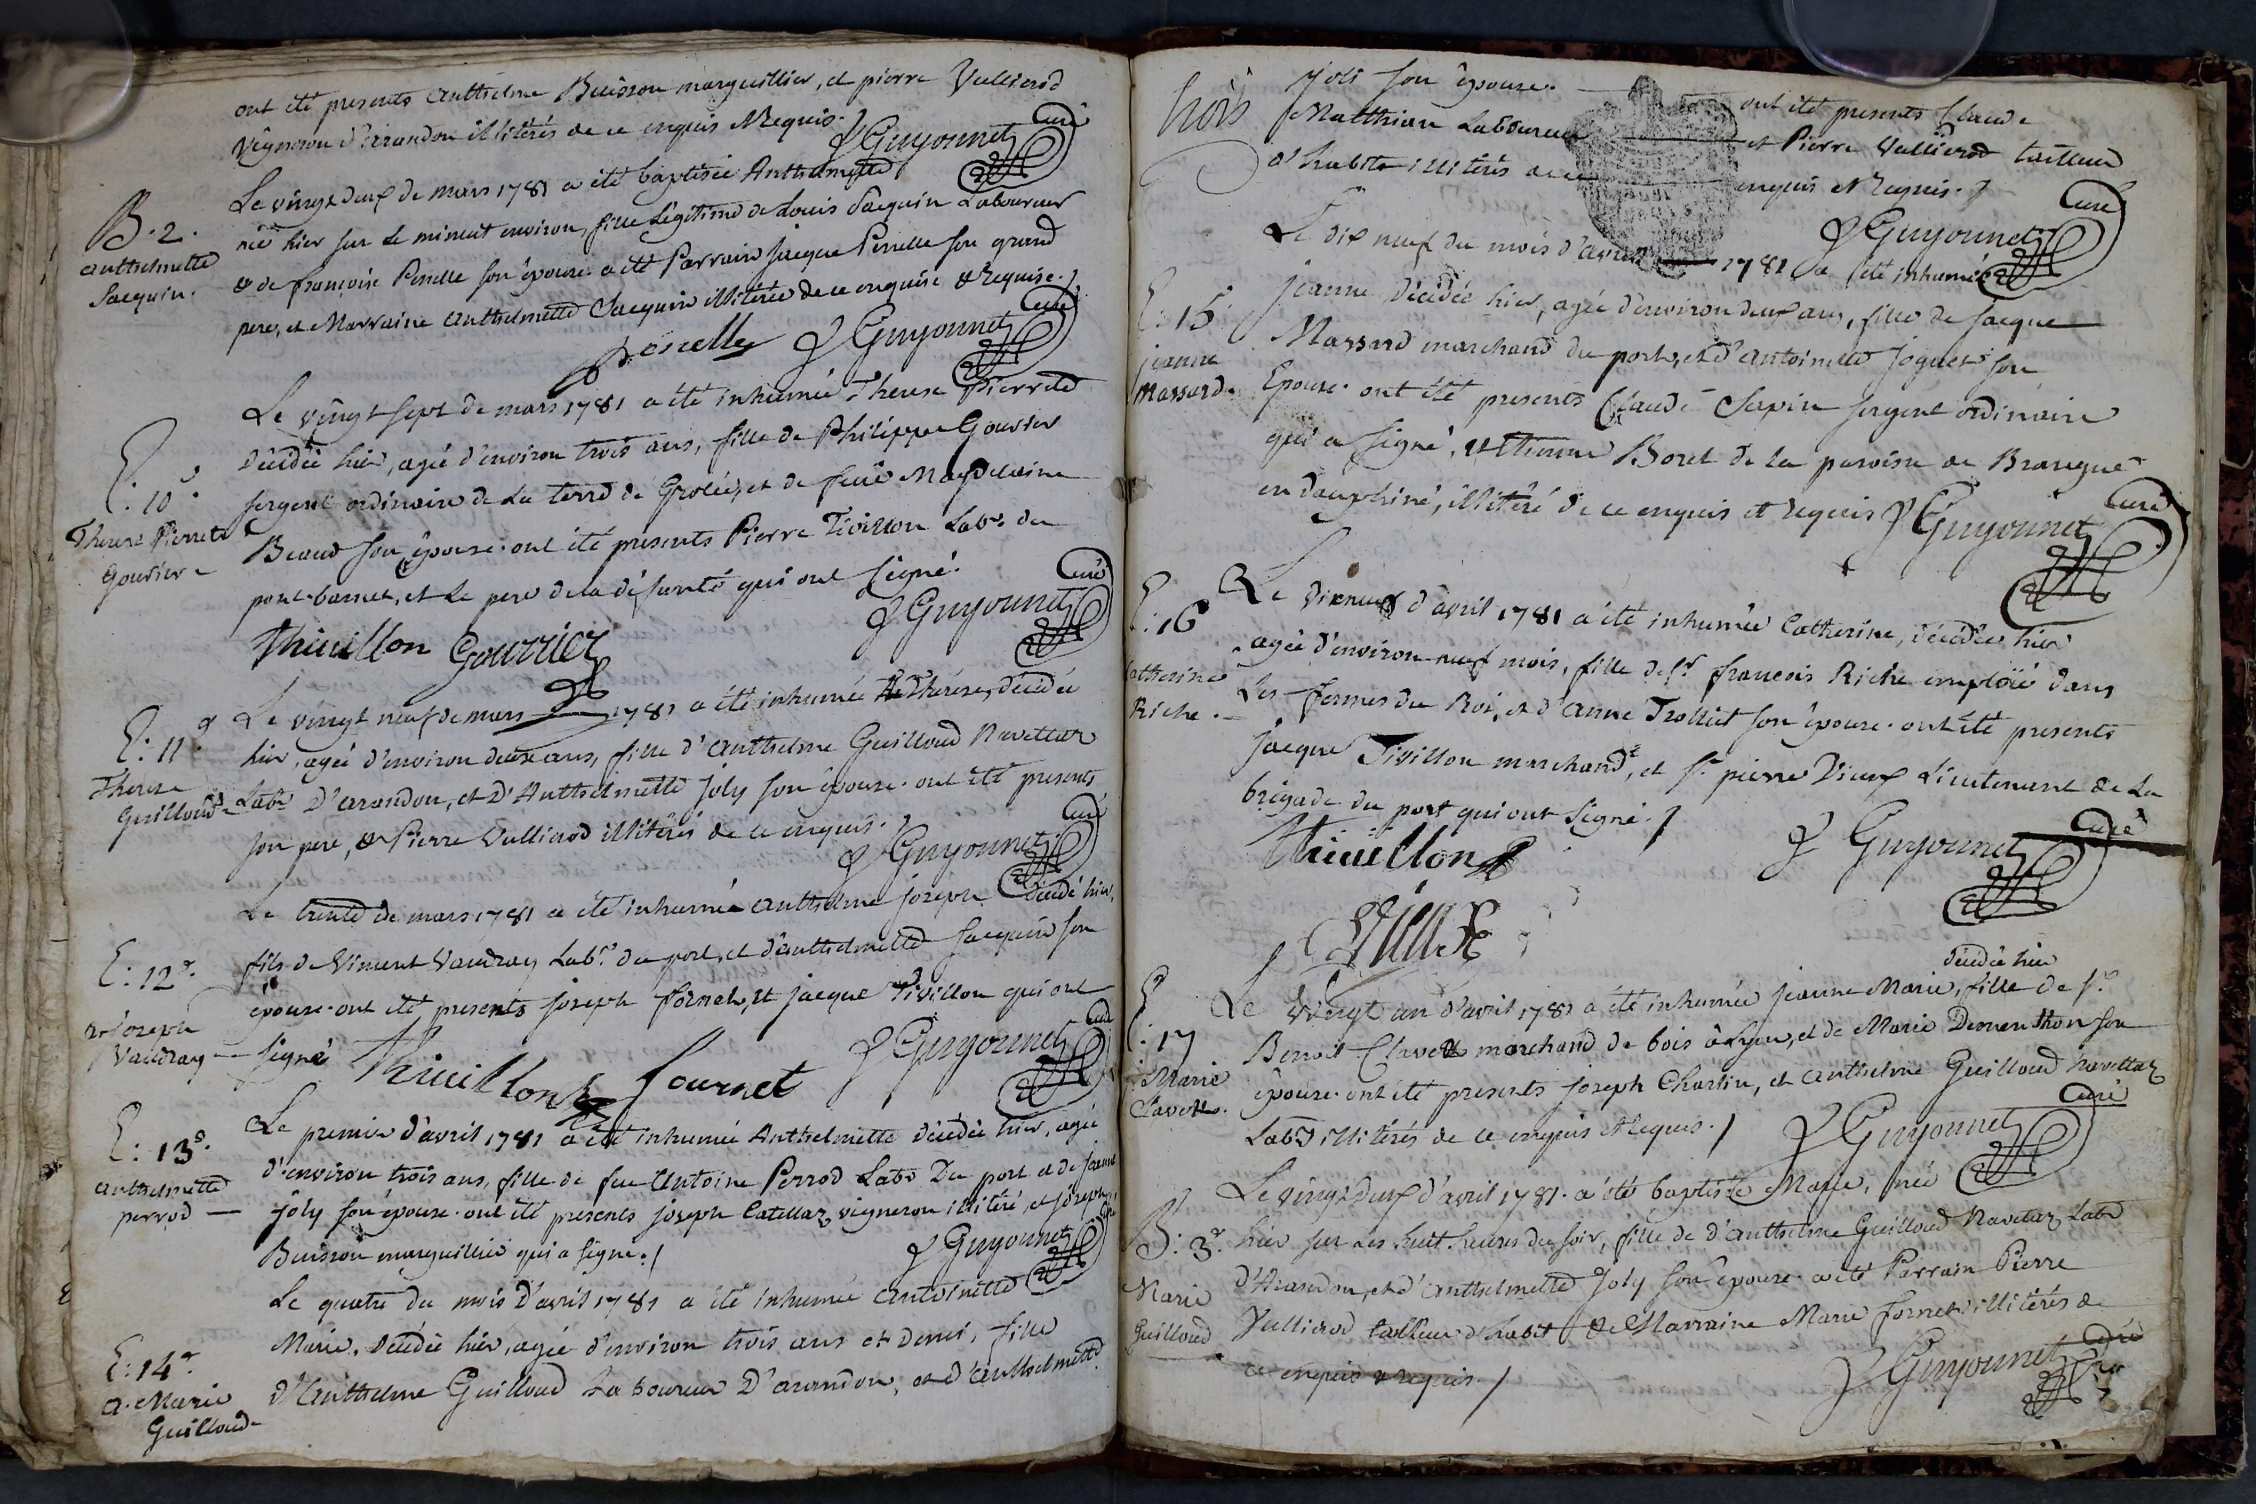 ont été presents anthelme Buisson marguillier, et pierre Vullierod
vigneron d'arandon illitérés de ce enquis et Requis./
J Guyonnet Curé
B. 2.
anthelmette
Jacquin.
Le vingt deux de mars 1781 a été baptisée Anthelmette
née hier sur le minuit environ, fille légitime de Louis Jacquin Laboureur
et de françoise Perelle son épouse a été Parrain Jacque Perelle son grand
pere, et Marraine anthelmette Jacquin illitérée de ce enquise et Requise./
J Guyonnet Curé
E. 10e
Therese Pierrette
Gourier
Le vingt sept de mars 1781 a été inhumée Therese Pierrette
décédée hier, agée d'environ trois ans, fille de Philippe Gourier
sergent ordinaire de la terre de Grolée, et de feüe Magdelaine
Beaud son épouse. ont été presents Pierre Tivillon Labr. du
port. et le pere de la défunte qui ont signé.
Thivillon Gourrier
J Guyonnet Curé
E: 11e
Therese
Guilloud
Le vingt neuf de mars 1781 a été inhumée Thérese, décédée
hier, agée d'environ deux ans, fille d'anthelme Guilloud Navettaz
Labr D'arandon, et D'Anthelmette Joly son épouse. ont été presents
son pere, et Pierre Vullierod illitérés de ce enquis./
J Guyonnet Curé
E: 12e.
Joseph
Vaudray
Le trente de mars 1781 a été inhumée anthelme joseph décédé hier,
fils de Vincent Vaudray Labr. du port, et d'anthelmette Jacquin son
epouse. ont été presents joseph fornet, et jacque Tivillon qui ont
signé
Thivillon fournet
J Guyonnet Curé
E: 13e.
anthelmette
perrod
Le premier d'avril 1781 a été inhumée Anthelmette décédée hier, agée
d'environ trois ans, fille de feu Antoine Perrod Labr Du port et de Jeanne
joly son épouse. ont été presents joseph Catellaz vigneron illitéré, et joseph
Buisson marguillier qui a signé./
J Guyonnet Curé
E: 14e
a. Marie
Guilloud
Le quatre du mois D'avril 1781 a été inhumée antoinette
Marie, décédée hier, agée d'environ trois ans et demi, fille
d'Anthelme Guilloud Laboureur D'arandon, et d'anthelmette
trois
joli son épouse. ont été presents Claude
Matthian Laboureur et Pierre Vullierod tailleur
d'habits illitérés de ce enquis et Requis./
J Guyonnet Curé
E. 15e
jeanne
Massard
Le dix neuf du mois d'avril 1781 a été inhumée
jeanne décédée hier, agée d'environ deux ans, fille de Jacque
Massard marchand du port, et d'antoinette Joguet son
Epouse. ont été presents Claude Sapin sergent ordinaire
qui a signé, et Etienne Boret de la paroisse de Brangue
en dauphiné, illitéré de ce enquis et requis
J Guyonnet Curé
E: 16
Catherine
Riche.
Le dixneuf d'avril 1781 a été inhumée Catherine, décédée hier
agée d'environ neuf mois, fille de Sr. francois Riche emploïé dans
Les fermes du Roi, et d'anne Trolliet son épouse. ont été presents
jacque Tivillon marchand, et Sr. pierre Vieux Lieutenant de La
brigade du port qui ont signé./
Thivillon
Vieux
J Guyonnet Curé
E. 17
Marie
Clavette.
décédée hier
Le vingt un d'avril 1781 a été inhumée jeanne Marie, fille de Sr.
Benoit Clavette marchand de bois à Lyon, et de Marie Dementhon son
épouse. ont été presents joseph Charlin, et anthelme Guilloud Navettaz
Labrs illitérés de ce enquis et requis./
J Guyonnet Curé
B: 3e
Marie
Guilloud
Le vingt deux d'avril 1781. a été baptisée Marie, née
hier sur les huit heures du soir, fille de d'anthelme Guilloud Navetaz Labr
d'Arandon, et d'anthelmette Joly son épouse. a été Parrain Pierre
Vullierod tailleur d'habit et Marraine Marie fornet illitérés de
ce enquis et requis./
J Guyonnet Curé